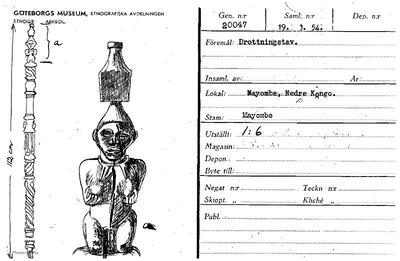 GÖTEBORGS MUSEUM, ETNOGRAFISKA AVDELNINGEN
ETNOGR. ARKEOL.
a
112 cm
Gen. n:r Saml. n:r Dep. n:r
20047 19. 3. 54.
Föremål: Drottningstav.
Insaml. av: År:
Lokal: Mayombe, Nedre Kongo.
Stam: Mayombe
Utställt: 1:6
Magasin:
Depon.
Byte till:
Negat n:r Teckn n:r
Skiopt. „ Kliché „
Publ.